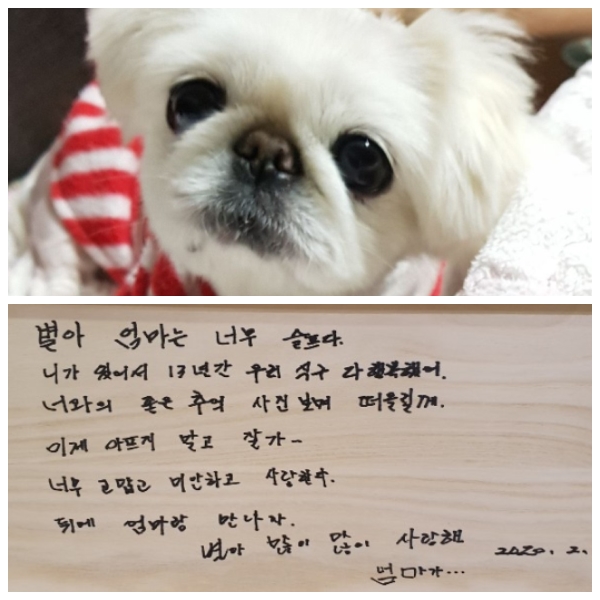 별아 엄마는 너무 슬프다.
니가 있어서 13년간 우리 식구 다 행복했어.
너와의 좋은 추억 사진 보며 떠올릴께.
이제 아프지 말고 잘가~
너무 고맙고 미안하고 사랑한다.
뒤에 엄마랑 만나자.
별아 많이 많이 사랑해
2020. 2.
엄마가...